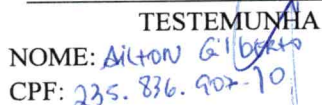 TESTEMUNHA
NOME: AiLTON GilBERTO
CPF: 235.836.907-10